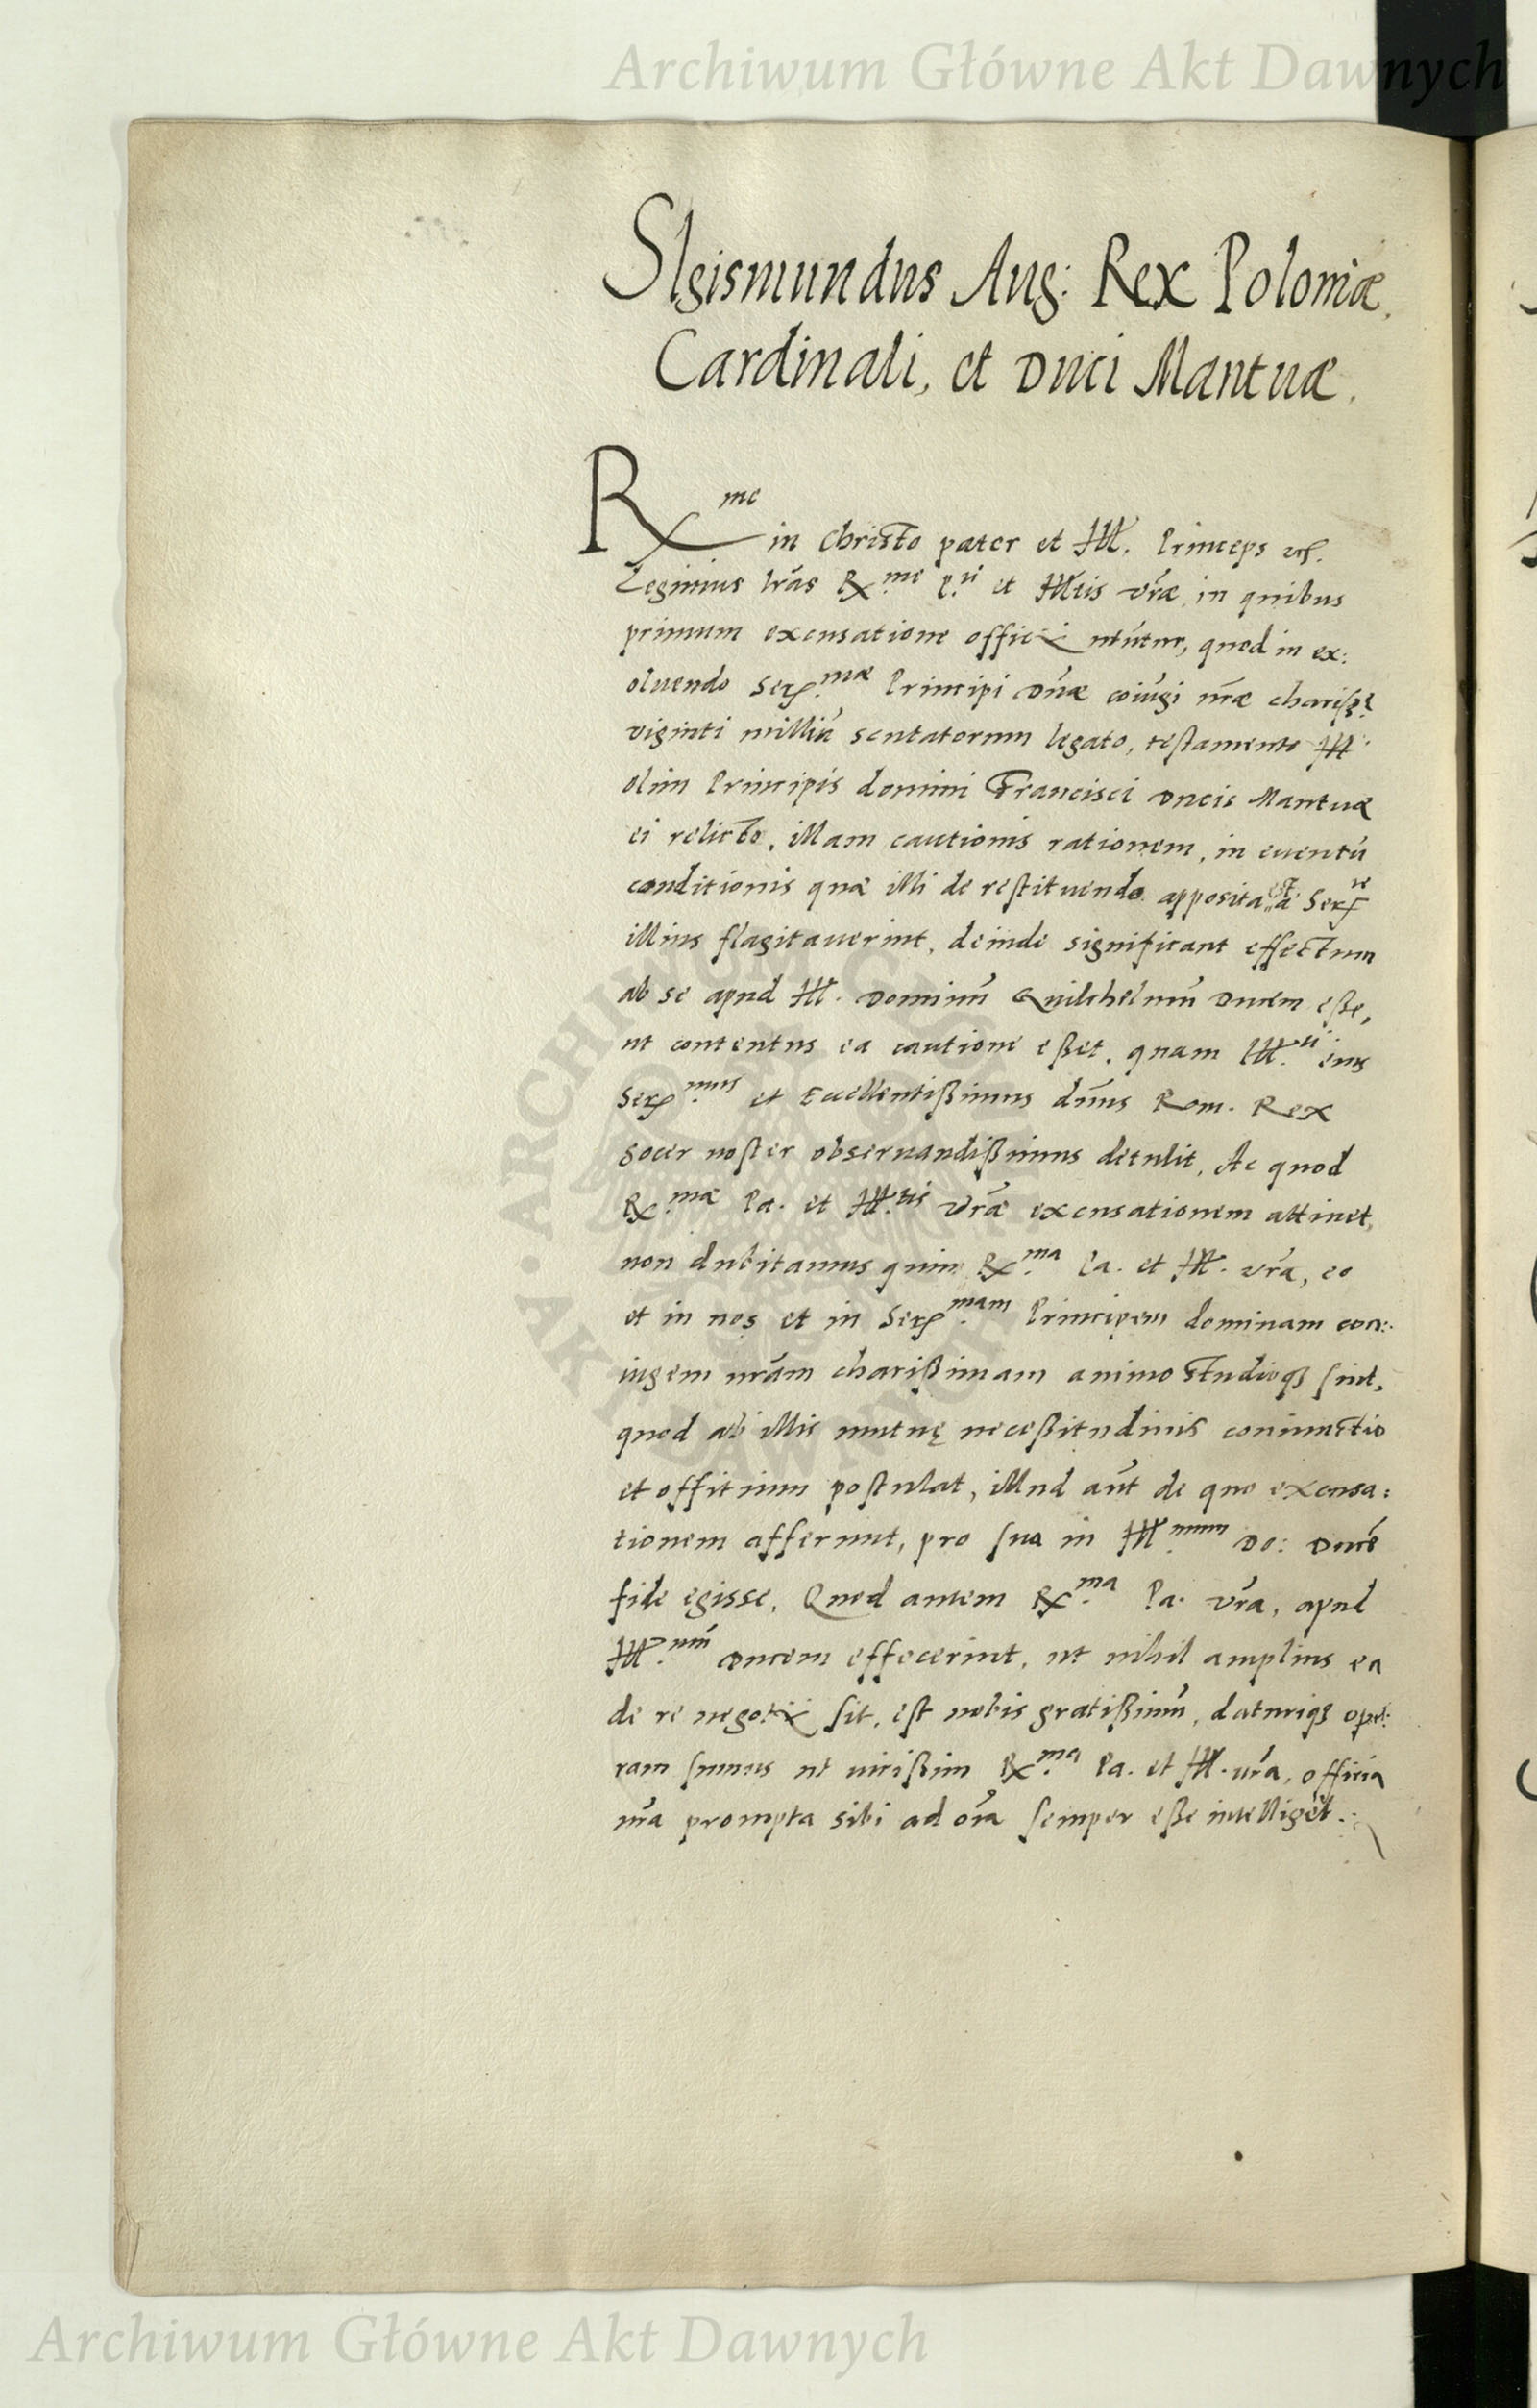 Archiwum Główne Akt Dawnych
SIgismundus Aug: Rex Poloniæ,
Cardinali, et Duci Mantuæ.
R me in Christo pater et Ill. Princeps
Legimus lrãs Rx.me P.ti et Illtis vrãe, in quibus
primum excusatione officii utũtur, quod in ex:
oluendo Ser.mæ Principi Dñæ coiũgi nrãe chariss.
viginti milliũ scutatorum legato, testamento Ill.
olim Principis domini Francisci Ducis Mantuæ
ei relicto, illam cautionis rationem, in euentũ
conditionis quæ illi de restituendo apposita est, a Ser.te
illius flagitauerint, deinde significant effectum
ab se apud Ill. Dominũ Guilhelmũ Ducem eße,
ut contentus ea cautione eßet, quam Ill.ti eius
Ser.mus et Excellentißimus dñus Rom. Rex
socer noster obseruandißimus detulit, Ac quod
Rx.mæ Pa. et Ill.tis vrãe excusationem attinet,
non dubitamus quin Rx.ma Pa. et Ill. vrã, eo
et in nos et in Ser.mam Principem dominam con:
iugem nrãm charißimam animo studioq3 sint,
quod ab illis mutuę neceßitudinis coniunctio
et offitium postulat, illud aũt de quo excusa:
tionem afferunt, pro sua in Ill.mum Do: Ducẽ
fide egisse, Quod autem Rx.ma Pa. vrã, apud
Ill.mũ Ducem effecerint, ut nihil amplius ea
de re negotii sit, est nobis gratißimũ, daturiq3 ope:
ram sumus ut uicißim Rx.ma Pa. et Ill. urã, officia
nrã prompta sibi ad oĩa semper eße intelligẽt.
Archiwum Główne Akt Dawnych